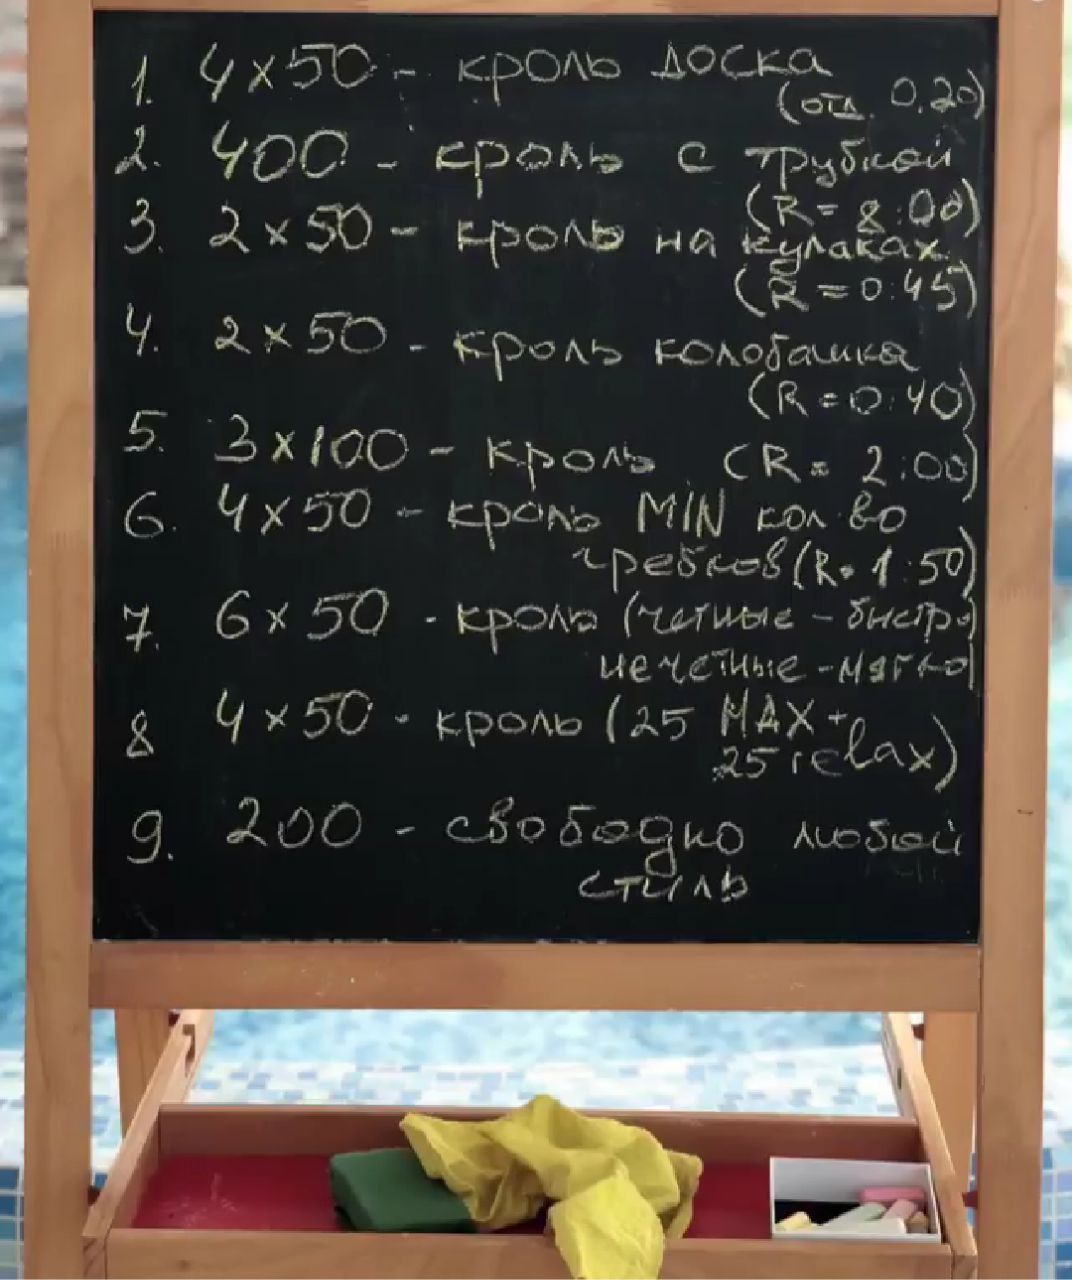 1. 4×50 - кроль доска
(отд. 0.20)
2. 400 - кроль с трубкой
(R = 8:00)
3. 2×50 - кроль на кулаках
(R = 0:45)
4. 2×50 - кроль колобашка
(R = 0:40)
5. 3×100 - кроль (R = 2:00)
6. 4×50 - кроль MIN кол-во
гребков (R = 1:50)
7. 6×50 - кроль (четные - быстро
нечетные - мягко)
8 4×50 - кроль (25 MAX +
25 relax)
9. 200 - свободно любой
стиль